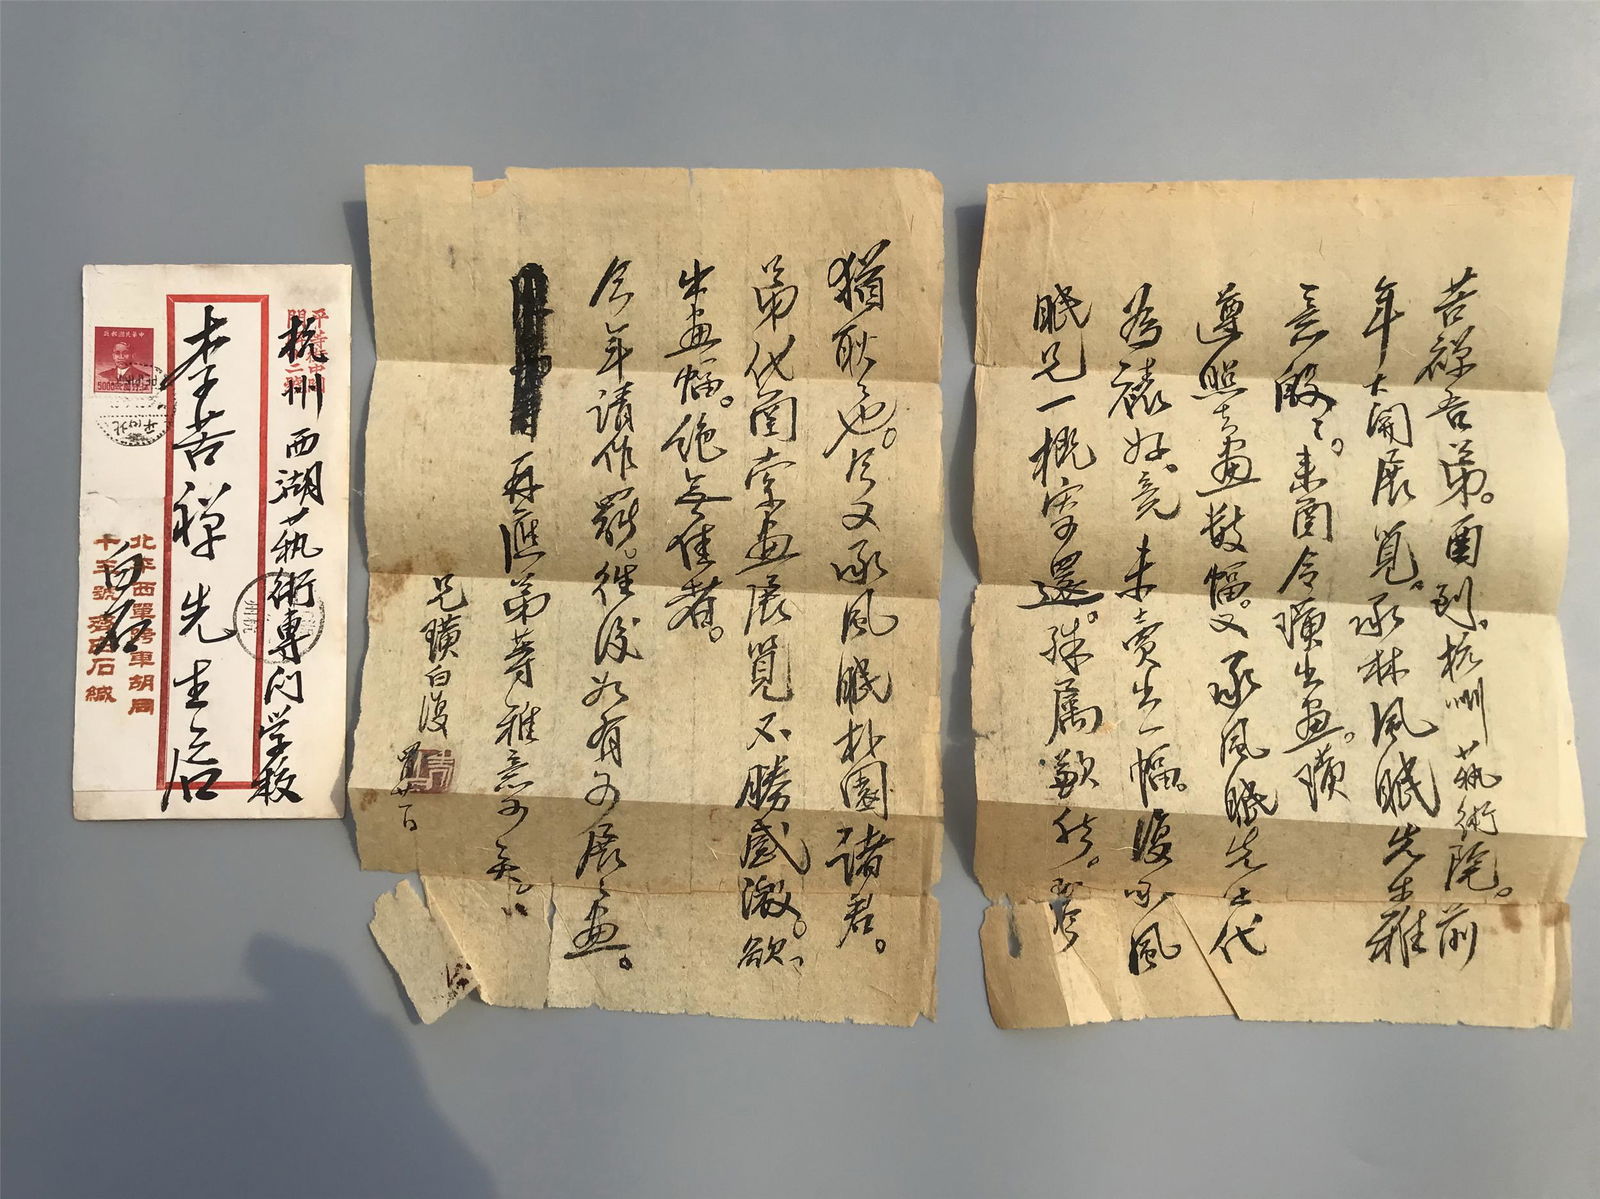 苦禪吾弟。函到。杭州藝術院。前
年大開展覽。承林風眠先生雅
意殷殷。來函令璜出畫。璜
遵照去畫數幅。又承風眠先生代
為裱好。竟未賣出一幅。復承風
眠兄一概寄還。殊屬歉然。
猶耿耿也。今又承風眠朴園諸君。
弟代函索畫展覽不勝感激。欲
出畫幅。絕無佳者。
今年請作罷。往後如有可展之畫。
再應弟等雅意可矣。
兄璜白復
杭州西湖藝術專門學校
李苦禪先生啟
白石
北平西單跨車胡同
十五號齊白石緘
中華民國郵政
5000